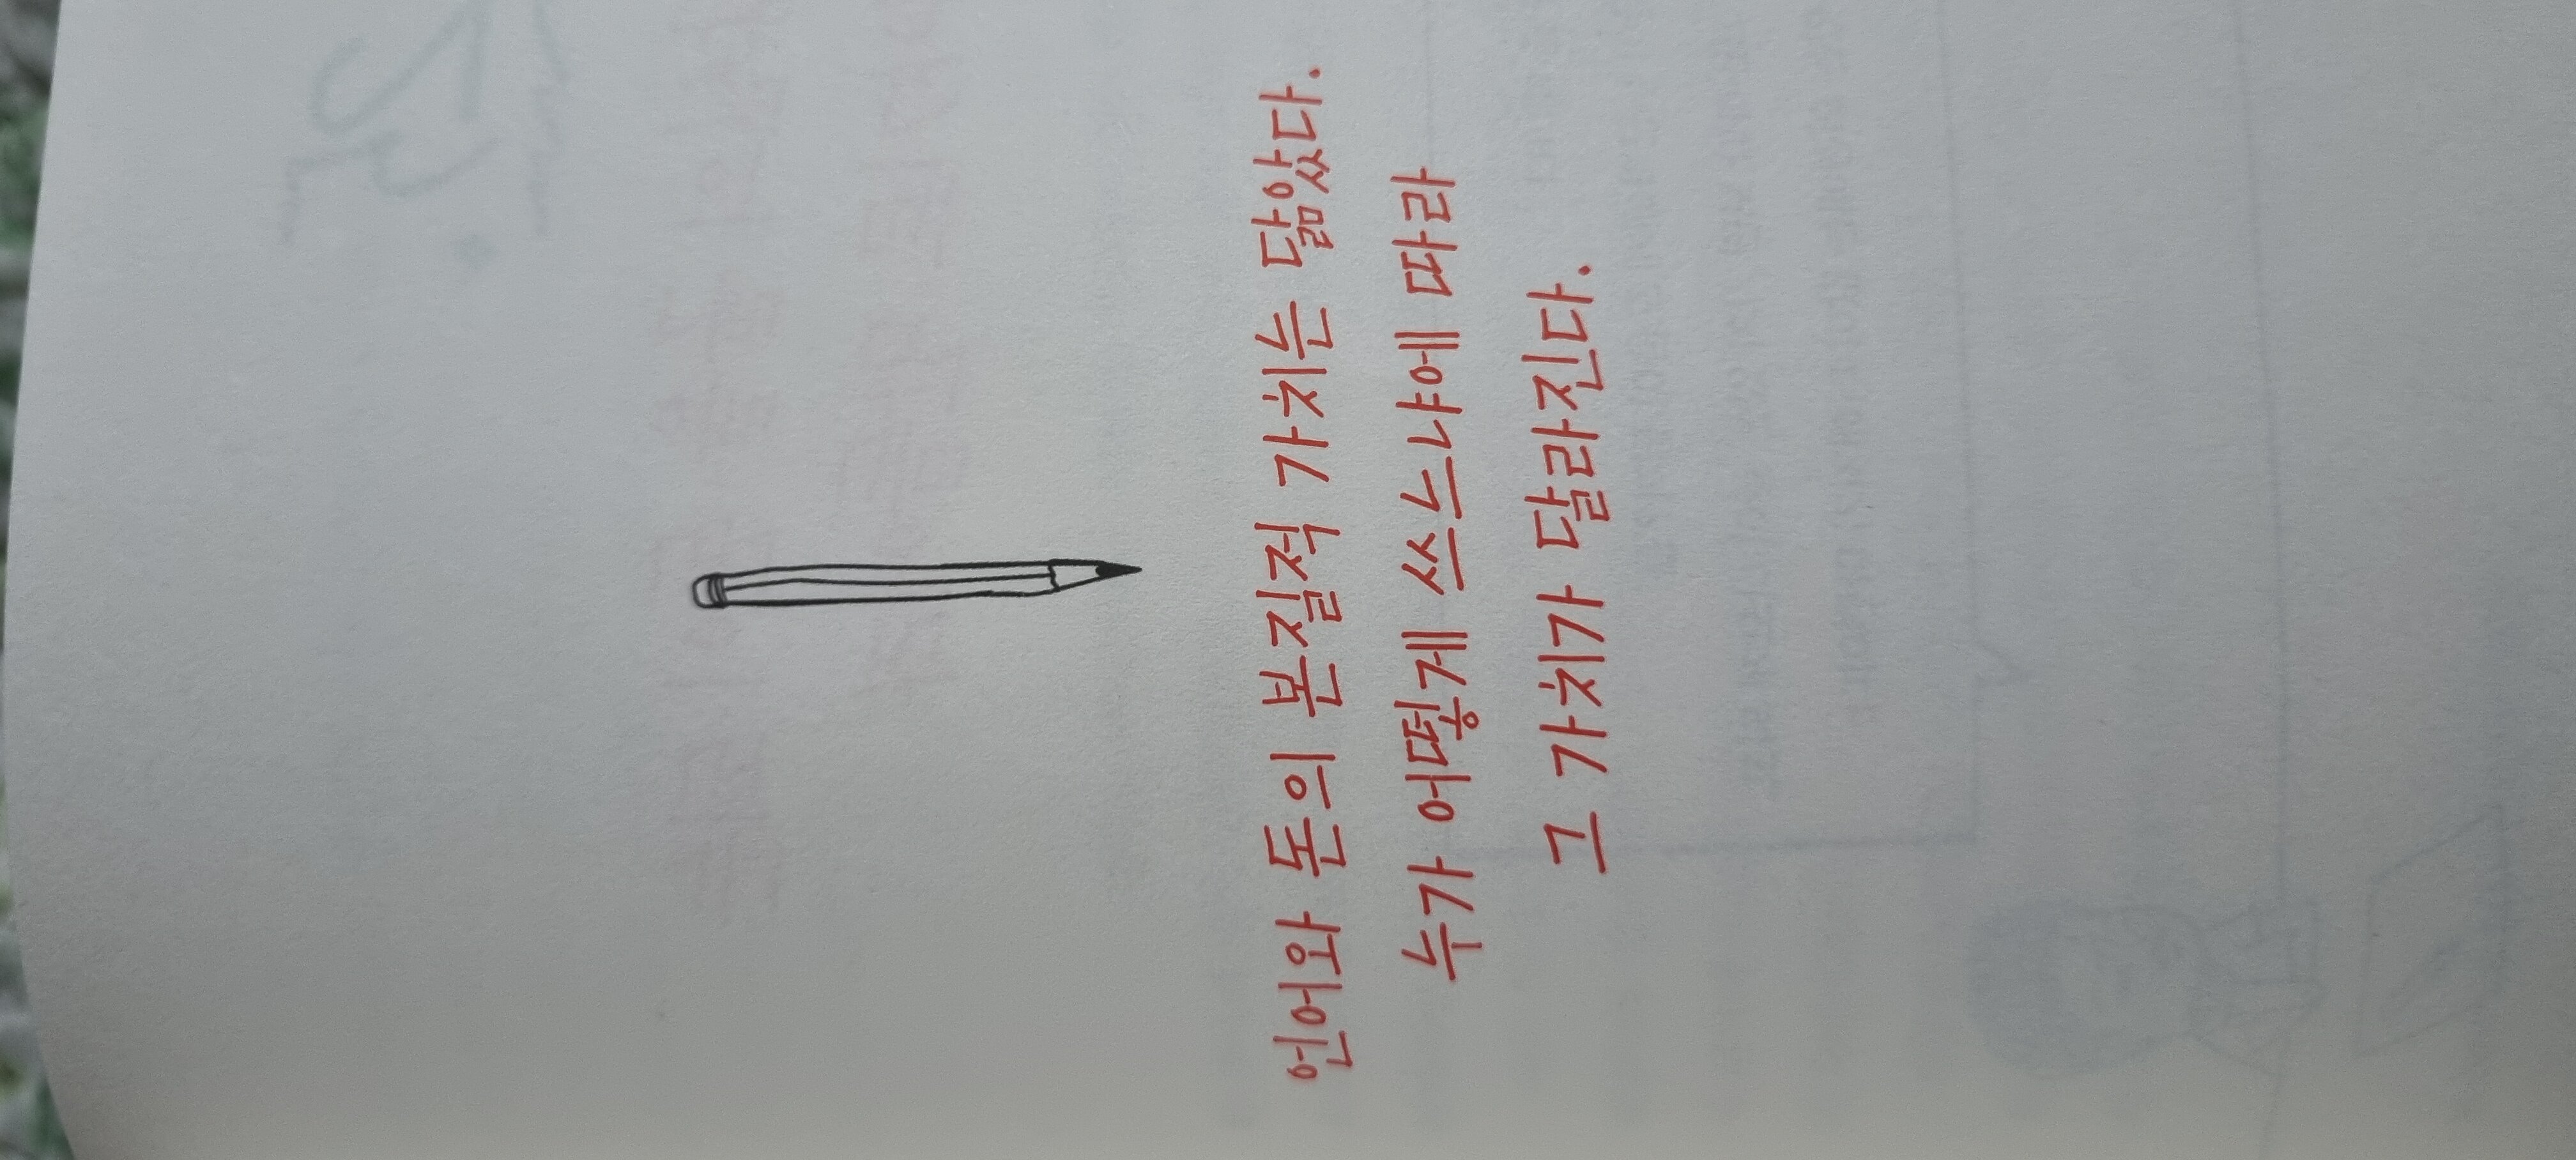 언어와 돈의 본질적 가치는 닮았다.
누가 어떻게 쓰느냐에 따라
그 가치가 달라진다.